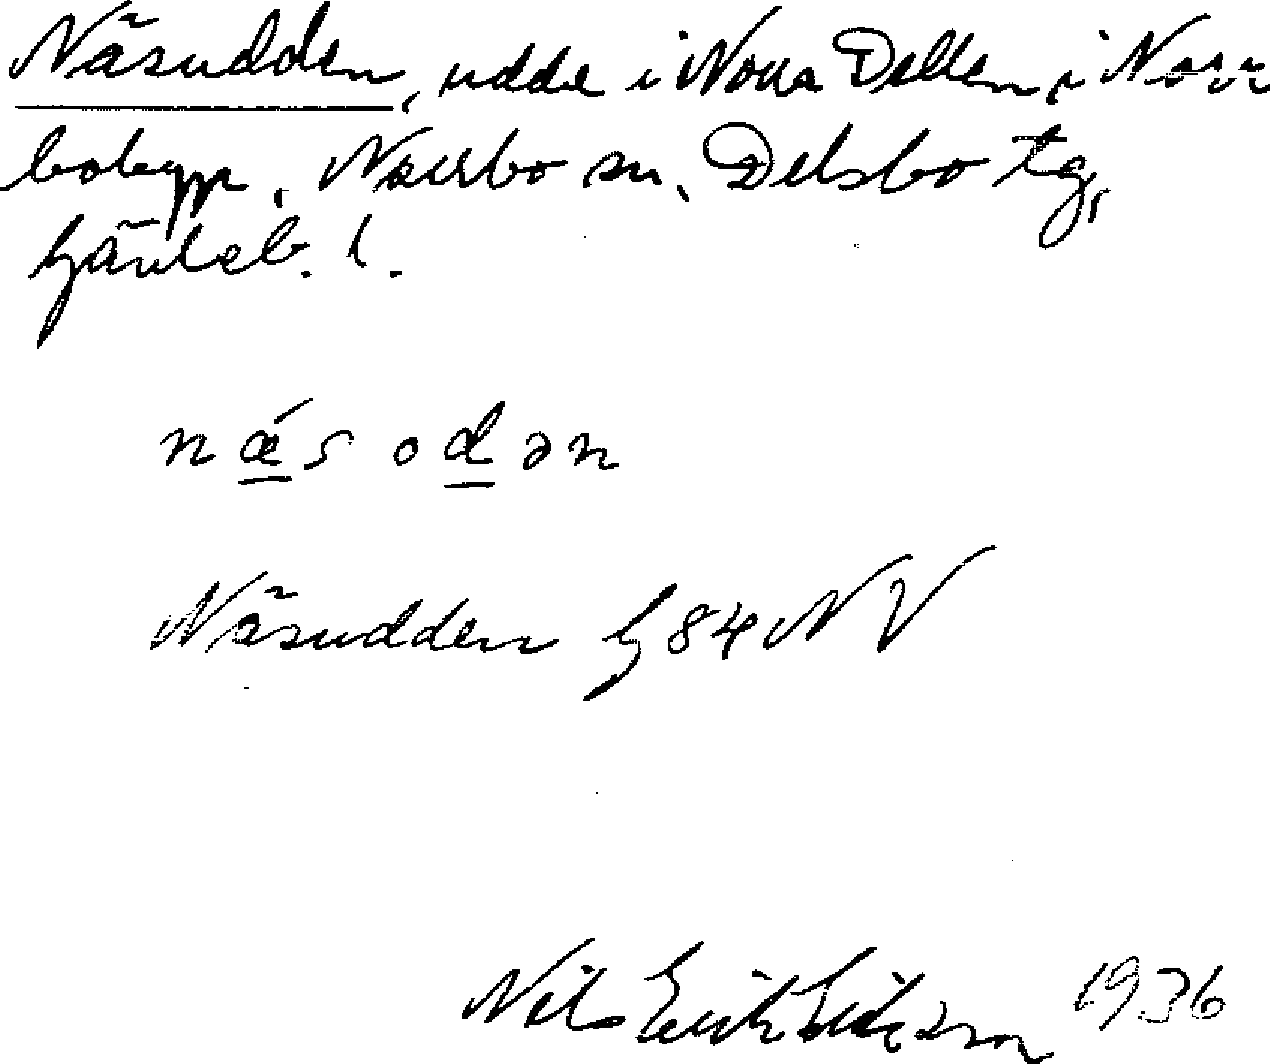 Näsudden, udde i Norra Dellen, i Norr
bobyn, Norrbo sn, Delsbo tg,
Gävleb. l.
nǽs odən
Näsudden G 84 NV
Nils Erik Eriksson 1936